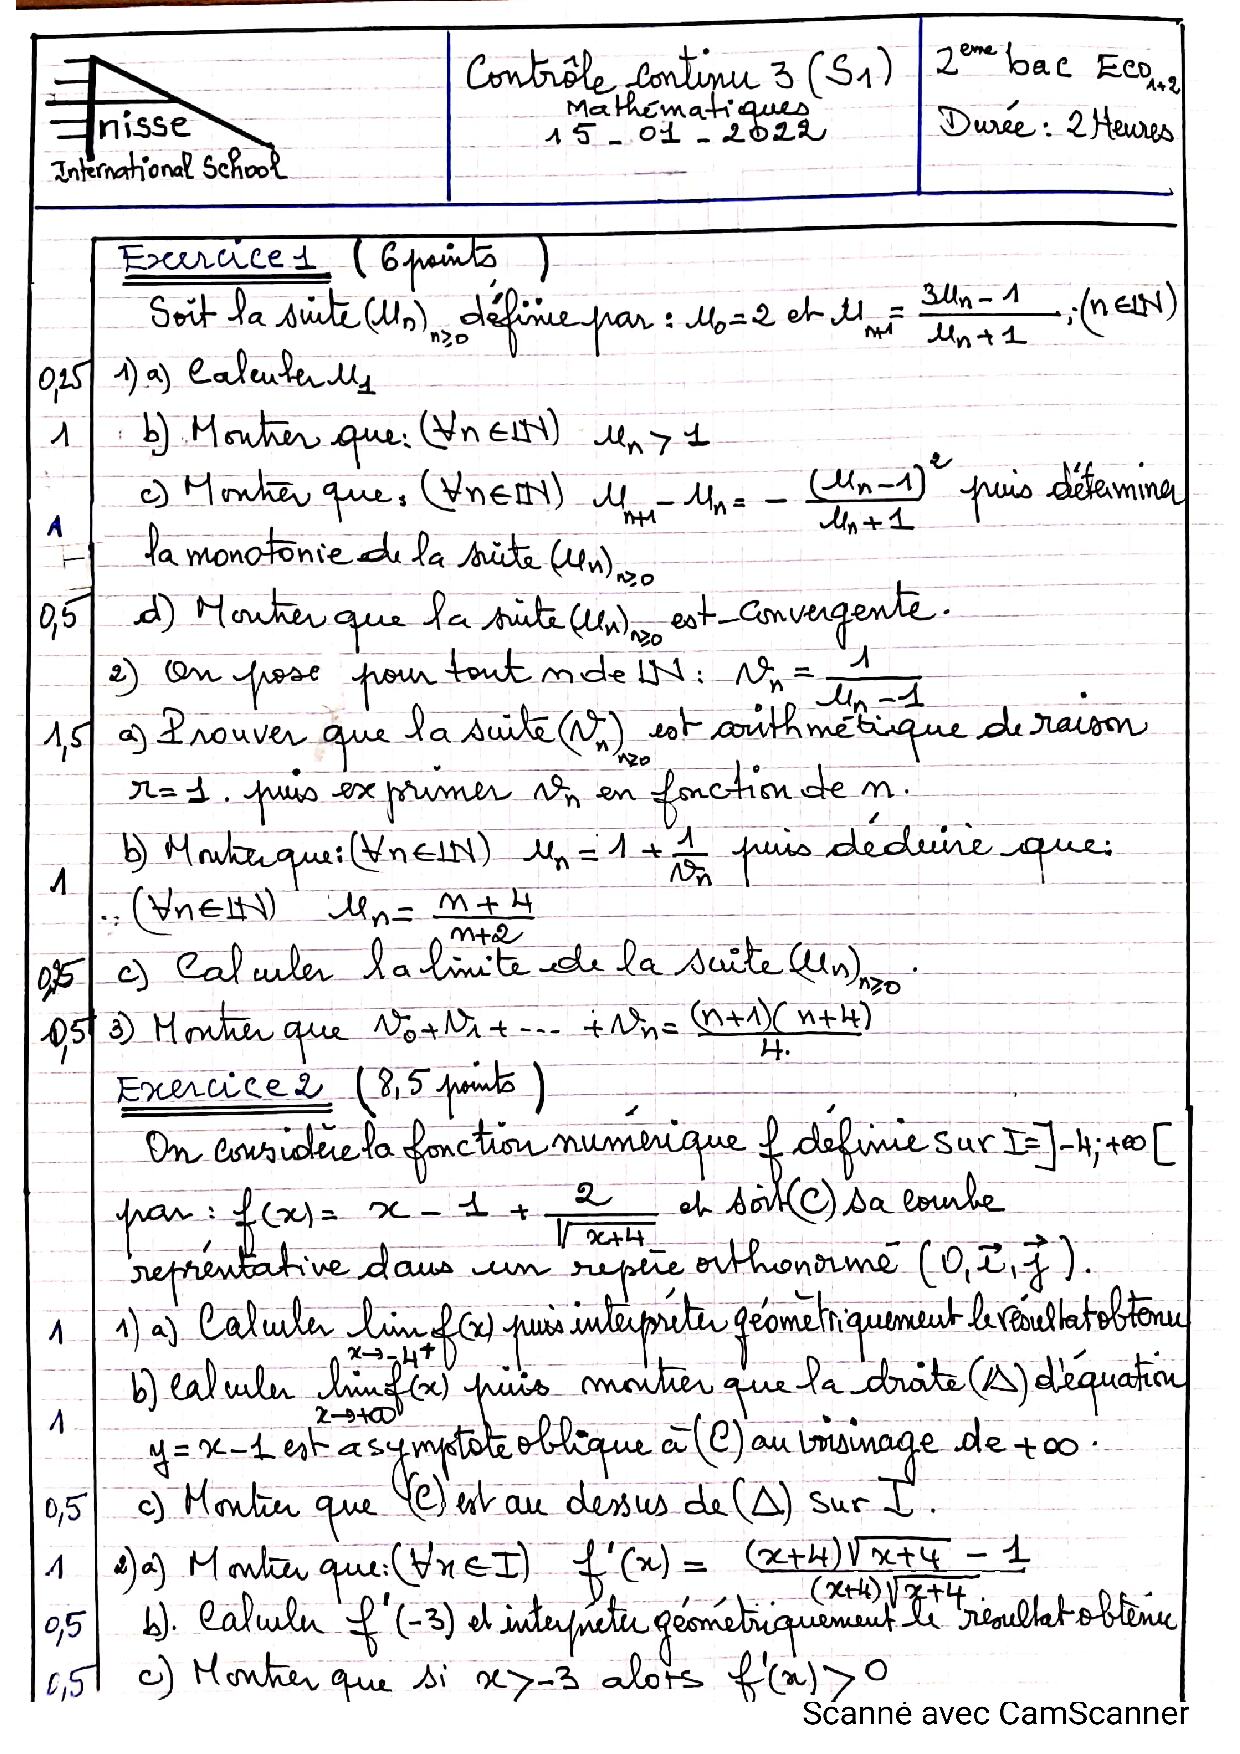 Enisse
International School
Contrôle continu 3 (S1)
Mathématiques
15_01_2022
2eme bac Eco1+2
Durée : 2 Heures
Exercice 1 (6 points)
Soit la suite (Un)n≥0 définie par : u0 = 2 et un+1 = (3un - 1)/(un + 1) ; (n∈IN)
0,25 1) a) Calculer u1
1 b) Montrer que : (∀n∈IN) un > 1
c) Montrer que : (∀n∈IN) un+1 - un = - (un - 1)²/(un + 1) puis détérminer
1 la monotonie de la suite (un)n≥0
0,5 d) Montrer que la suite (un)n≥0 est convergente.
2) On pose pour tout n de IN : Vn = 1/(un - 1)
1,5 a) Prouver que la suite (Vn)n≥0 est arithmétique de raison
r = 1. puis exprimer Vn en fonction de n.
b) Montrer que : (∀n∈IN) un = 1 + 1/Vn puis déduire que :
1 (∀n∈IN) un = (n + 4)/(n + 2)
c) Calculer la limite de la suite (un)n≥0.
0,5 3) Montrer que V0 + V1 + --- + Vn = (n+1)(n+4)/4.
Exercice 2 (8,5 points)
On considère la fonction numérique f définie sur I = ]-4; +∞[
par : f(x) = x - 1 + 2/√(x+4) et soit (C) sa courbe
repréntative dans un repère orthonormé (O, i, j).
1 1) a) Calculer lim x→-4+ f(x) puis interpréter géométriquement le résultat obtenu
b) Calculer lim x→+∞ f(x) puis montrer que la droite (Δ) d'équation
1 y = x - 1 est asymptote oblique à (C) au voisinage de +∞.
0,5 c) Montrer que (C) est au dessus de (Δ) sur I.
1 2) a) Montrer que : (∀x∈I) f'(x) = ((x+4)√(x+4) - 1)/((x+4)√(x+4))
0,5 b). Calculer f'(-3) et interpréter géométriquement le résultat obtenu
0,5 c) Montrer que si x > -3 alors f'(x) > 0
Scanné avec CamScanner